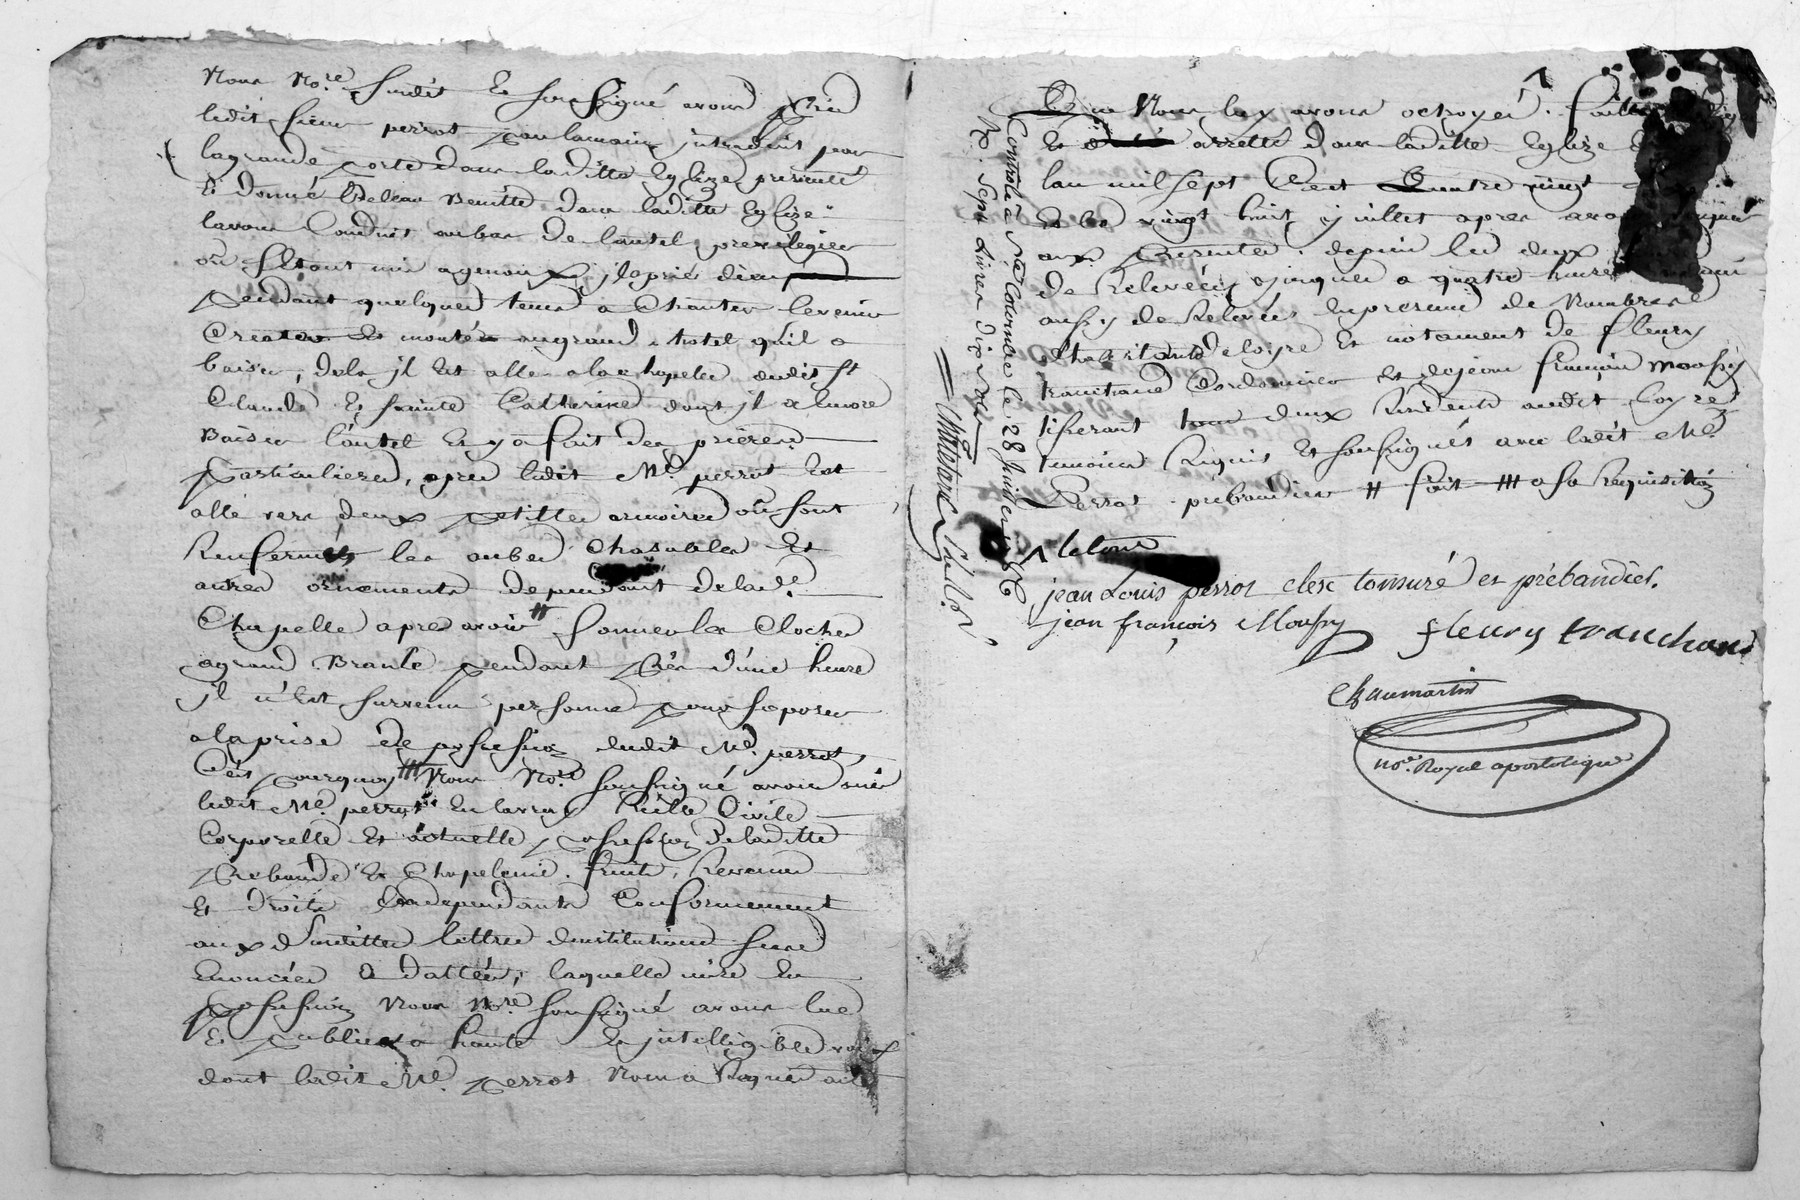 Nous No.re susdit Et soussigné avons pris
ledit sieur perrot par lamain introduit par
lagrande porte dans laditte Eglize, presenté
Et donné Deleau Benitte dans laditte Eglize
lavons Conduit aubas de lautel previlegier
où s'Etant mis agenoux, jl aprié dieu
pendant quelques tems a Chanter levenir
Creator Et montér augrand hotel qu'il a
baiser, dela jl Est alle ala chapelle dudit St
Claude Et sainte Catherine dont jl a Encore
Baiser l'autel Et y a fait des prieres
particulieres, apres ledit Me. perrot Est
allé vers deux petittes armoires où sont
Renfermés les aubes Chasubles Et
autres ornements dependant delad.e
Chapelle apres avoir # sonner les Cloches
agrand Branle pendant près d'une heure
jl n'Est survenu personne pour s'oposer
alaprise de possession dudit Me. perrot,
C'est pourquoy ### Nous No.re soussigné avons mis
ledit Me. perrot En lavraye Réelle Civile
Corporelle Et actuelle possession Deladitte
prebande Et Chapelenie. fruits, Revenus
Et droits Endependants Conformement
aux dsusdittes lettres dinstitutions sus
Enoncées Et dattées, laquelle mise En
possession Nous No.re soussigné avons lue
Et publiée a haute Et jntelligible voix
dont ledit Me. perrot Nous a Requis acte
Que Nous luy avons octroyer. fait
Et arretté dans laditte Eglize
lan mil sept Cent Quatre vingt
Et le vingt huit juillet apres avoir
aux presentes. depuis les deux
de Relevées, jusques a quatre heures
aussy de Relevées Enpresence de Nombre
d'habitants deloyre Et notament de fleury
tranchand Cordonnier Et dejean françois moussy
tisserant tous deux Residents audit Loyre
temoins Requis Et soussignés avec ledit Me.
Perrot prébandier # fait ### a sa Requisition
^ letout
jean Louis perrot clerc tonsuré et prébandier.
jean françois Moussy
fleury tranchand
Chaumartin
no.re Royal apostolique
Controlé a Ste Colombe le 28 Juillet 1786
R. Sept Livres dix sols